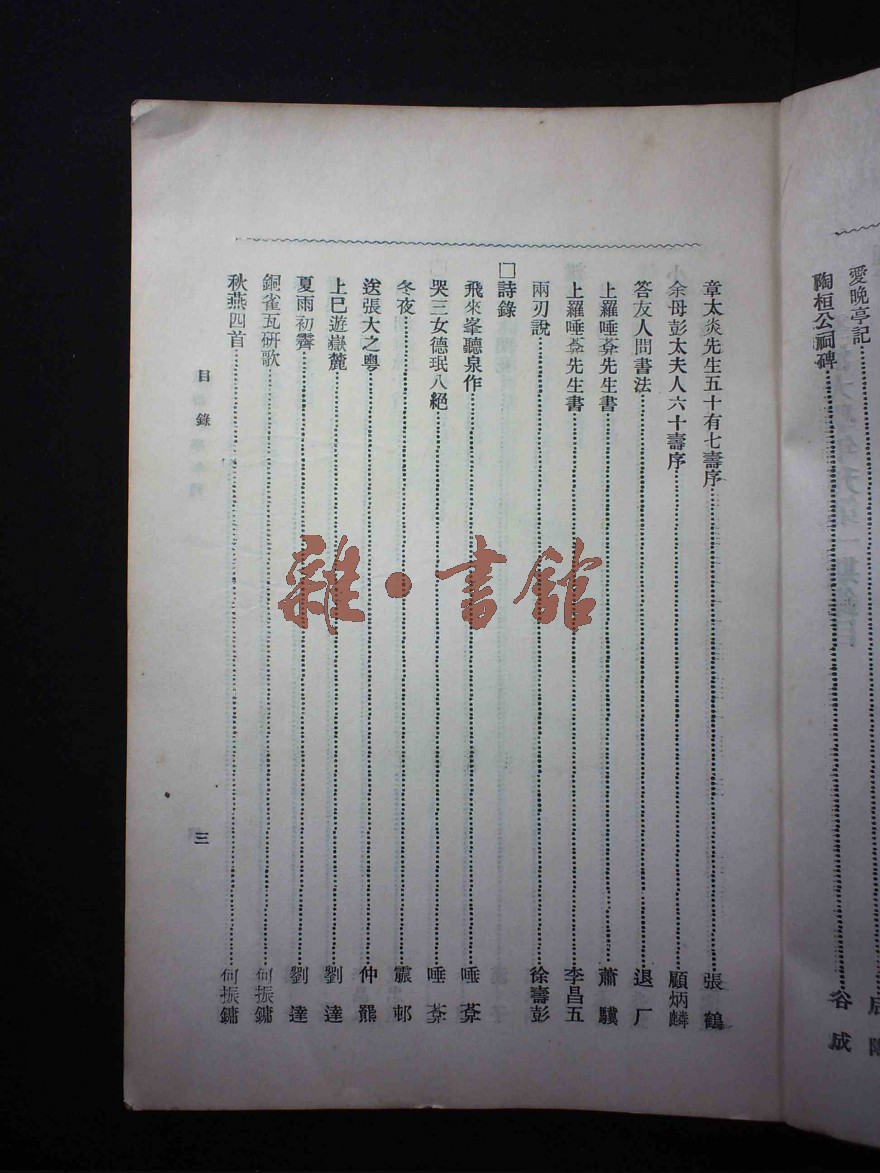 愛晚亭記
陶桓公祠碑 谷成
章太炎先生五十有七壽序 張鶴
余母彭太夫人六十壽序 顧炳麟
答友人問書法 退厂
上羅唾葊先生書 蕭驥
上羅唾葊先生書 李昌五
兩刃說 徐壽彭
□詩錄
飛來峯聽泉作 唾葊
哭三女德珉八絕 唾葊
冬夜 震邨
送張大之粵 仲羆
上巳遊嶽麓 劉達
夏雨初霽 劉達
銅雀瓦研歌 何振鏞
秋燕四首 何振鏞
目錄
三
雜·書館